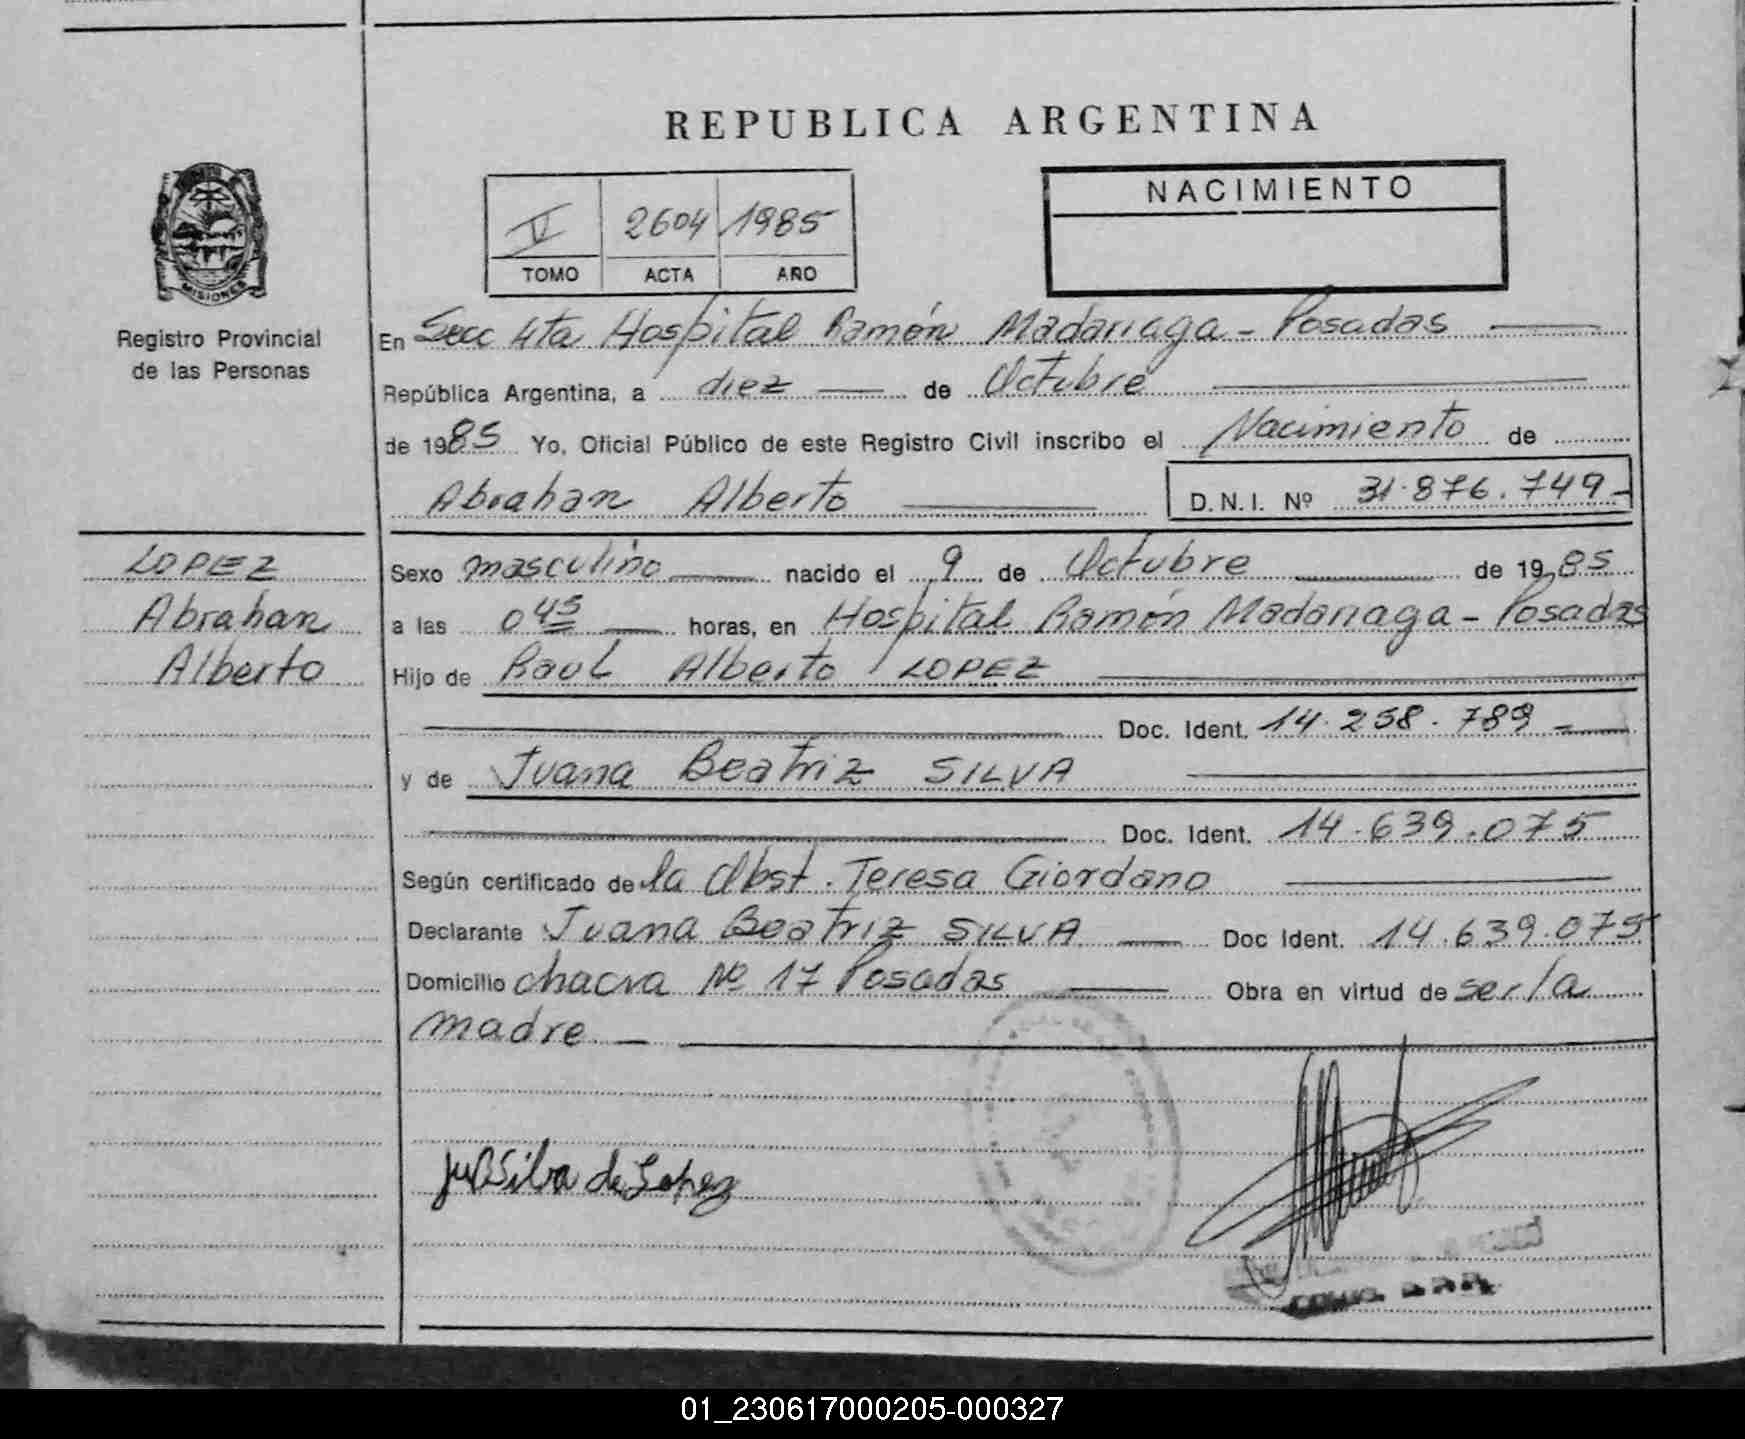 REPUBLICA ARGENTINA
MISIONES
Registro Provincial
de las Personas
V 2604 1985
TOMO ACTA AÑO
NACIMIENTO
En Secc 4ta Hospital Ramón Madariaga - Posadas
República Argentina, a diez de Octubre
de 1985 Yo, Oficial Público de este Registro Civil inscribo el Nacimiento de
Abrahan Alberto D.N.I. Nº 31.876.749
LOPEZ
Abrahan
Alberto
Sexo masculino nacido el 9 de Octubre de 1985
a las 0 45 horas, en Hospital Ramón Madariaga - Posadas
Hijo de Raul Alberto LOPEZ
Doc. Ident. 14.258.789
y de Juana Beatriz SILVA
Doc. Ident. 14.639.075
Según certificado de la Obst. Teresa Giordano
Declarante Juana Beatriz SILVA Doc Ident. 14.639.075
Domicilio chacra Nº 17 Posadas Obra en virtud de ser la
madre.
Silva de Lopez
01_230617000205-000327